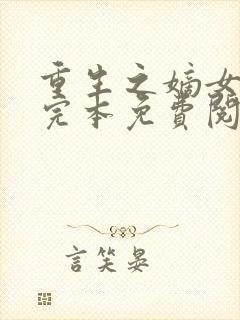 重生之嫡女
完本免費閱
言笑晏